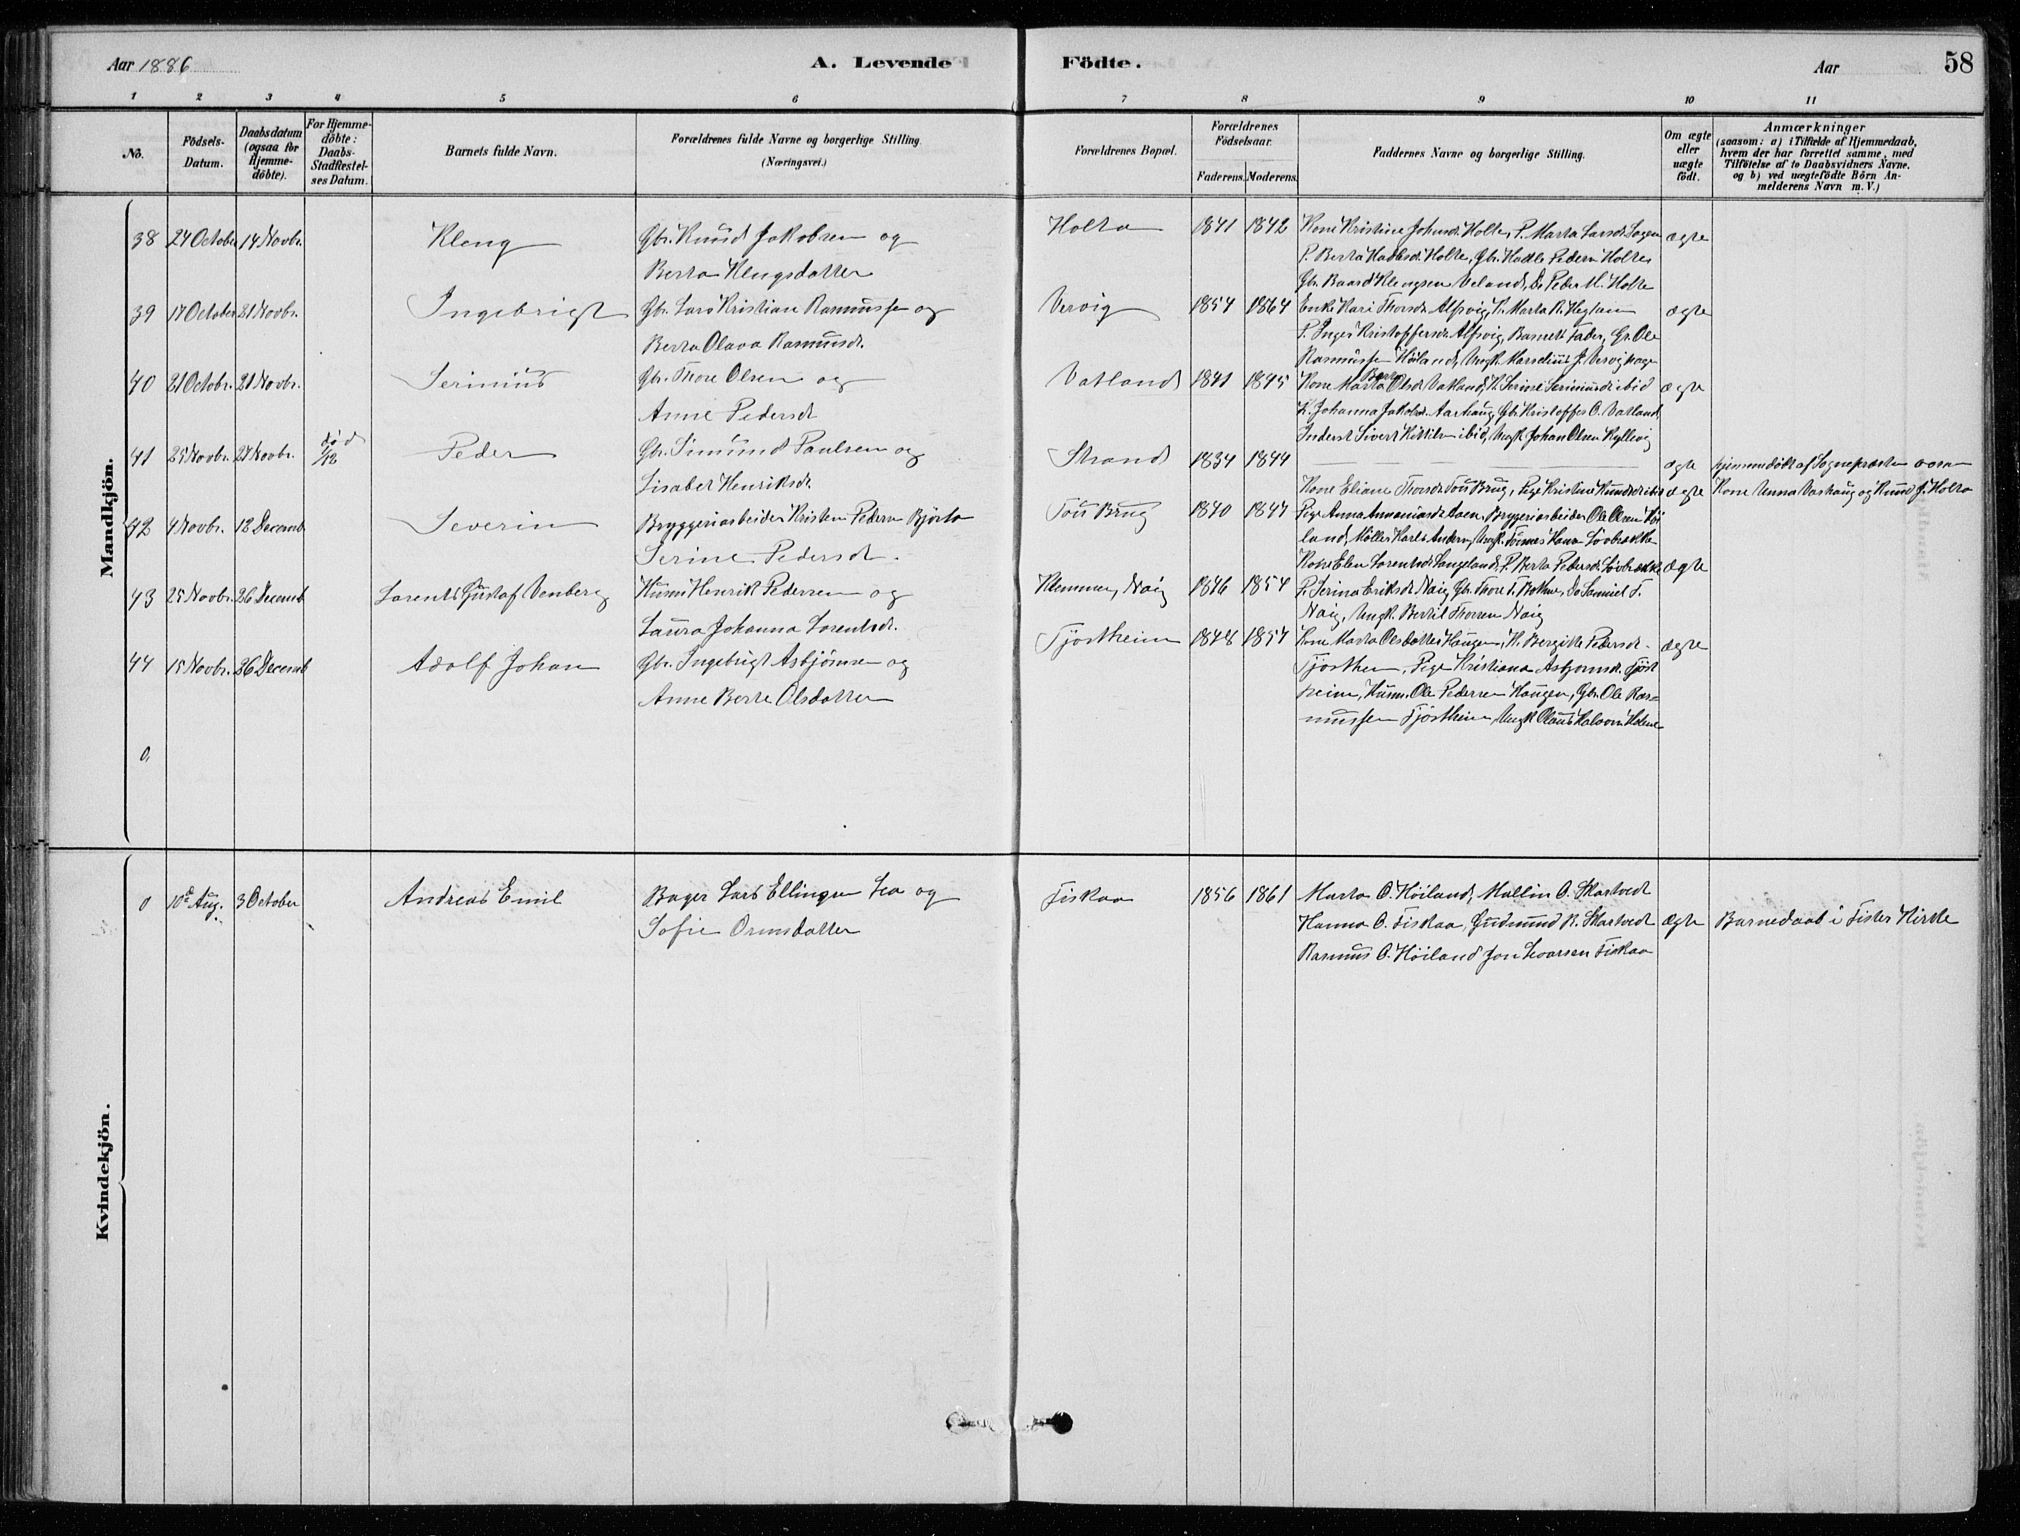 Aar 1886
A. Levende Födte.
Aar
58
1 2 3 4 5 6 7 8 9 10 11
No.
Födsels-Datum.
Daabsdatum (ogsaa for Hjemme-döbte).
For Hjemme-döbte: Daabs-Stadfæstel-ses Datum.
Barnets fulde Navn.
Forældrenes fulde Navne og borgerlige Stilling. (Næringsvei.)
Forældrenes Bopæl.
Forældrenes Födselsaar.
Faderens. Moderens.
Faddernes Navne og borgerlige Stilling.
Om ægte eller uægte födt.
Anmærkninger
(saasom: a) i Tilfælde af Hjemmedaab, hvem der har forrettet samme, med Tilföielse af to Daabsvidners Navne. og b) ved uægtefödte Börn An-melderens Navn m. V.)
Mandkjön.
38 24 October 14 Novbr. Kleng Gbr. Knud Jakobsen og
Berta Klengsdatter
Holta 1841 1842 Kone Kristine Johnsd. Holte, P. Marta Larsd.
P. Berta Hadlesd. Holte, Gbr. Hadle Pedersen Holte,
Gbr. Baard Klengsen Veland, Do Peder M. Holte
ægte
39 17 October 21 Novbr. Ingebrigt Gbr. Lars Kristian Rasmussen og
Berta Olava Rasmusd.
Vervig 1854 1864 Enke Kari Thorsd. Alfsvig, P. Marta R.
P. Inger Kristoffersd. Alfsvig, Barnets Fader, Gr. Ole
Rasmussen Höiland, Ungk. Marselius J. Vervig
ægte
40 21 Octobr. 21 Novbr. Serinius Gbr. Thore Olsen og
Anne Pedersd.
Vatland 1841 1845 Kone Marta Berta Olsd. Vatland, K. Serine ibid
K. Johanna Jakobsd. Aarhaug, Gbr. Kristoffer O. Vatland
Inderst Sivert ibid, Ungk. Johan Olsen
ægte
41 25 Novbr. 27 Novbr. död /12 Peder Gbr. Simund Paulsen og
Lisabet Henriksd.
Strand 1834 1844 ægte hjemmedöbt af Sognepræsten
Kone Anna Vashaug og Knud J. Holta
42 4 Novbr. 12 Decemb. Severin Bryggeriarbeider Kristen Pedersen
Serine Pedersd.
Tou Brug 1840 1847 Kone Eliane Thorsd. Tou Brug, Pige Kristine Knudsd. ibid
Pige Anna Bryggeriarbeider Ole Olsen
land, Möller Karl Andersen, Ungk. Hans
ægte
43 25 Novbr. 26 Decemb. Lorents Gustaf Venberg Husm. Henrik Pedersen og
Laura Johanna Lorentsd.
Klemmen, Naig 1846 1854 Kone Elen Lorentsd. Langeland, P. Berta Pedersd.
P. Serina Eriksd. Naig, Gbr. Thore T. Do Samuel T.
Naig, Ungk. Bertil Thorsen Naig
ægte
44 15 Novbr. 26 Decemb Adolf Johan Gbr. Ingebrigt Asbjörnsen og
Anne Berte Olsdatter
Tjöstheim 1848 1854 Kone Marta Olsdatter Haugen, K. Bergitte Pedersd.
Tjösthem, Pige Kristiana Asbjornsd. Tjöst
heim, Husm. Ole Pedersen Haugen, Gbr. Ole Ras-
mussen Tjöstheim, Ungk. Olaus
ægte
0,
Kvindekjön.
0 10de Aug. 3 October Andreas Emil Bager Lars Ellingsen Lea og
Sofie Ormsdatter
Fiskaa 1856 1861 Marta O. Höiland, Mallin O. Skartvedt
Hanna O. Fiskaa, Gudmund R. Skartvedt
Rasmus O. Höiland Jon Fiskaa
Ægte Barnedaab i Fister Kirke